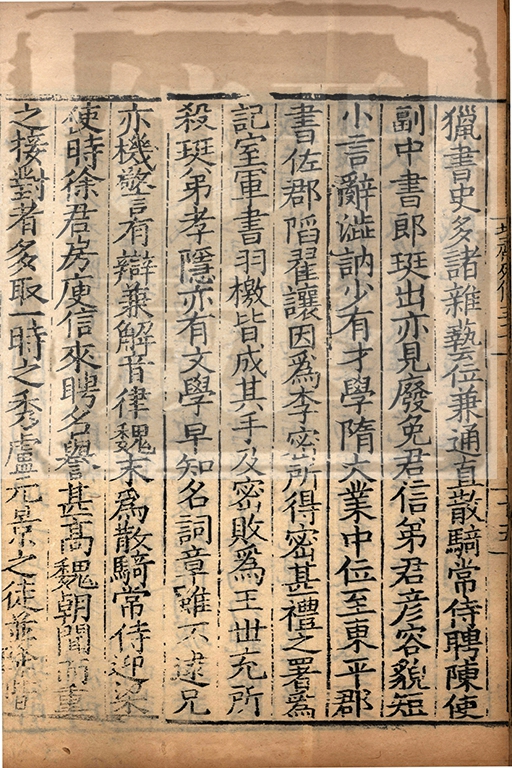 獵書史多諸雜藝位兼通直散騎常侍聘陳使
副中書郎珽出亦見廢免君信弟君彦容貌短
小言辭澁訥少有才學隋大業中位至東平郡
書佐郡䧟翟讓因爲李密所得密甚禮之署爲
記室軍書羽檄皆成其手及密敗爲王世充所
殺珽弟孝隱亦有文學早知名詞章雖不逮兄
亦機警有辯兼解音律魏末爲散騎常侍迎梁
使時徐君房庾信來聘名譽甚高魏朝聞而重
之接對者多取一時之秀盧元景之徒並